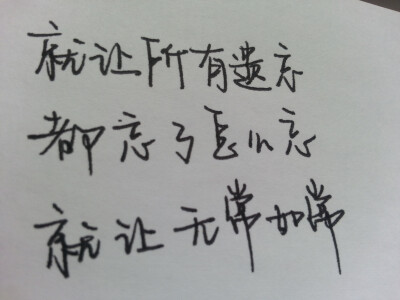 就让所有遗忘
都忘了怎么忘
就让无常如常